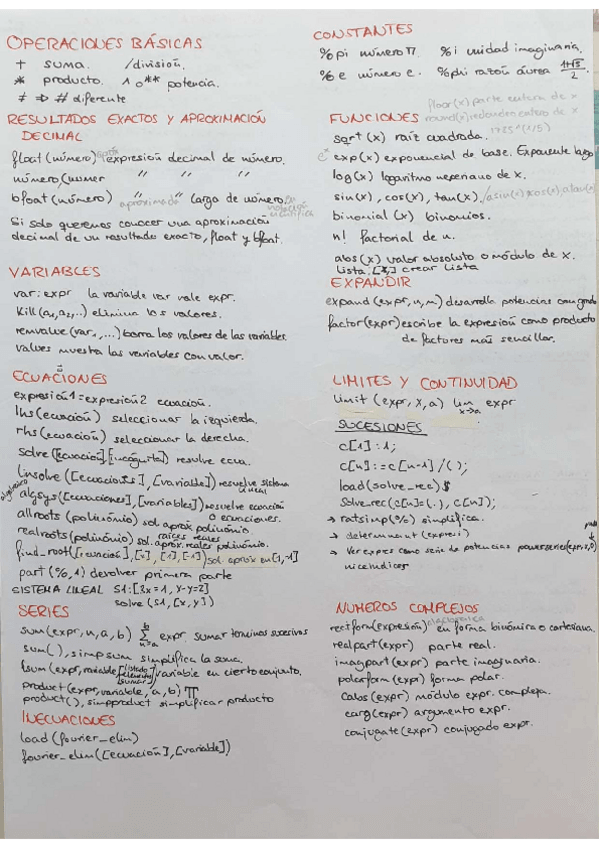 OPERACIONES BÁSICAS
+ suma. /división.
* producto. ^ o ** potencia.
≠ => # diferente
RESULTADOS EXACTOS Y APROXIMACIÓN
DECIMAL
float(número) expresión decimal de número.
número,numer " " "
bfloat(número) aproximado " larga de número. científica
Si solo queremos conocer una aproximación
decimal de un resultado exacto, float y bfloat.
VARIABLES
var:expr la variable var vale expr.
Kill(a1,a2,..) elimina los valores.
remvalue(var1,...) borra los valores de las variables.
values muestra las variables con valor.
ECUACIONES
expresión1=expresión2 ecuación.
lhs(ecuación) seleccionar la izquierda.
rhs(ecuación) seleccionar la derecha.
solve([ecuación],[incógnita]) resuelve ecua.
linsolve([ecuaciones],[variable]) resuelve sistema
lineal
algsys([ecuaciones],[variables]) resuelve ecuación
o ecuaciones.
allroots(polinomio) sol aprox polinomio.
raíces reales
realroots(polinomio) sol. aprox. reales polinomio.
find_root([ecuación],[x],[-1],[1]) sol aprox en [1,-1]
part(%,1) devolver primera parte
SISTEMA LINEAL S1:[3x=1, x-y=2]
solve(S1,[x,y])
SERIES
sum(expr,n,a,b) Σ expr sumar términos sucesivos
sum(),simpsum simplifica la suma.
lsum(expr,variable,[listado elementos sumar]) variable en cierto conjunto.
product(expr,variable,a,b) ∏
product(),simpproduct simplificar producto
INECUACIONES
load(fourier_elim)
fourier_elim([ecuación],[variable])
CONSTANTES
%pi número π. %i unidad imaginaria.
%e número e. %phi razón áurea (1+√5)/2.
floor(x) parte entera de x
FUNCIONES round(x) redondeo entero de x
sqrt(x) raíz cuadrada. 1785^(1/5)
e^x exp(x) exponencial de base. Exponente largo
log(x) logaritmo neperiano de x.
sin(x), cos(x), tan(x). /asin(x) acos(x) atan(x)
binomial(x) binomios.
n! factorial de n.
abs(x) valor absoluto o módulo de x.
lista:[x,] crear lista
EXPANDIR
expand(expr,n,m) desarrolla potencias con grado
factor(expr) escribe la expresión como producto
de factores más sencillos.
LIMITES Y CONTINUIDAD
limit(expr,x,a) lim x→a expr
SUCESIONES
c[1]:1;
c[n]:=c[n-1]/();
load(solve_rec)$
Solve_rec(c[n]=(.), c[n]);
→ ratsimp(%) simplifica.
→ determinant(expresi)
→ Ver expres como serie de potencias powerseries(expr,x,0)
niceindices
NÚMEROS COMPLEJOS
rectform(expresión) en forma binómica o cartesiana.
realpart(expr) parte real.
imagpart(expr) parte imaginaria.
polarform(exp) forma polar.
cabs(expr) módulo expr. compleja.
carg(expr) argumento expr.
conjugate(expr) conjugado expr.